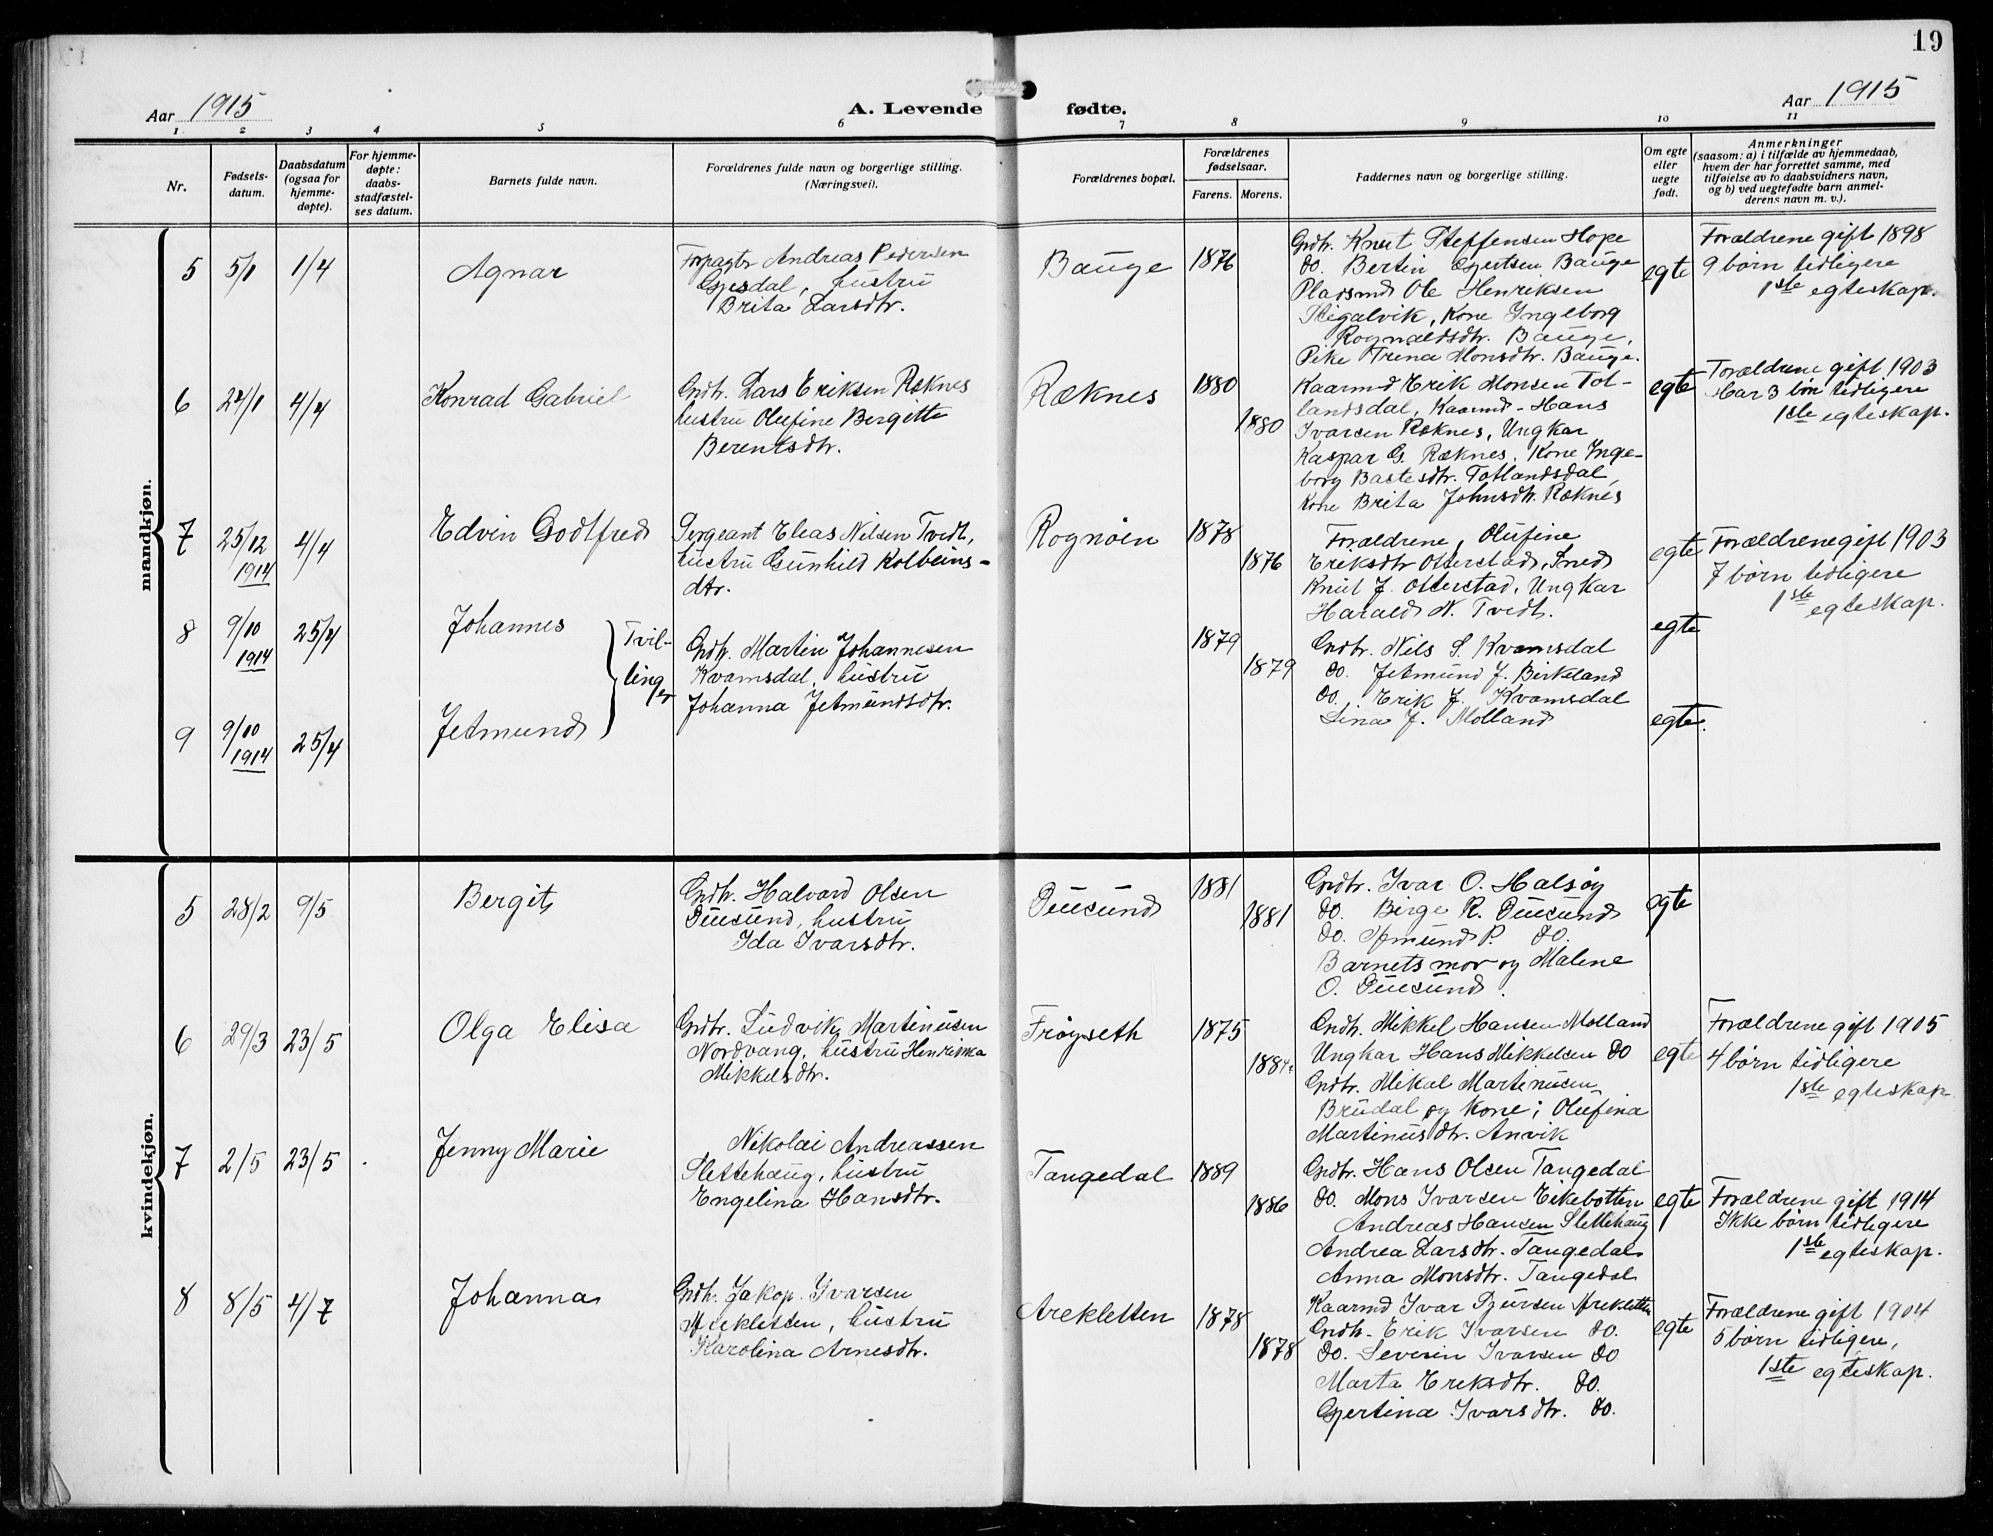 19
Aar 1915 A. Levende fødte. Aar 1915
1 2 3 4 5 6 7 8 9 10 11
Nr.
Fødsels-
datum.
Daabsdatum
(ogsaa for
hjemme-
døpte).
For hjemme-
døpte:
daabs-
stadfæstel-
ses datum.
Barnets fulde navn.
Forældrenes fulde navn og borgerlige stilling.
(Næringsvei).
Forældrenes bopæl.
Forældrenes
fødselsaar.
Farens. Morens.
Faddernes navn og borgerlige stilling.
Om egte
eller
uegte
født.
Anmerkninger
(saasom: a) i tilfælde av hjemmedaab,
hvem der har forrettet samme, med
tilføielse av to daabsvidners navn,
og b) ved uegtefødte barn anmel-
derens navn m. v.).
mandkjøn.
5 5/1 1/4 Agnar
Forpagtr Andreas Pedersen
Gjesdal, hustru
Brita Larsdtr.
Bauge 1876
Grdtr. Knut Steffensen Hope
do. Bertin Gjertsen Bauge
Pladsmd Ole Henriksen
Kone Ingeborg
Rognaldsdtr. Bauge,
Pike Trina Monsdtr. Bauge.
egte
Forældrene gift 1898
9 børn tidligere
1ste egteskap.
6 4/4 Konrad Gabriel
Grdtr. Lars Eriksen Ræknes
hustru Olufine Bergette
Berentsdtr.
Ræknes 1880 1880
Kaarmd Erik Monsen Tot-
landsdal, Kaarmd - Hans
Ivarsen Ræknes, Ungkar
Kaspar G. Ræknes, Kone Inge-
borg Bastesdtr. Totlandsdal,
Kone Brita Johnsdtr. Ræknes
egte
Forældrene gift 1903
Har 3 børn tidligere
1ste egteskap.
7 25/12 1914 4/4 Edvin Godtfred
Sergeant Elias Nilsen Tvedt,
hustru Gunhild Kolbeins-
dtr.
Rognøen 1878 1876
Forældrene, Olufine
Eriksdtr Otterstad, Smed
Knut J. Otterstad, Ungkar
Harald N. Tvedt.
egte
Forældrene gift 1903
7 børn tidligere
1ste egteskap.
8 9/10 1914 25/4 Johannes
Tvil-
ling
er
Grdtr. Martin Johannesen
Kvamsdal, hustru
Johanna Jetmundsdtr.
1879 1879
Grdtr. Nils S. Kvamsdal
do. Jetmund J. Birkeland
do. Erik J. Kvamsdal
Lina J. Molland
egte
9 9/10 1914 25/4 Jetmund
egte.
kvindekjøn.
5 28/2 9/5 Bergit
Grdtr. Halvard Olsen
Duesund, hustru
Ida Ivarsdtr.
Duesund 1881 1881
Grdtr. Ivar O. Halsøy
do. Birge R. Duesund
do. P. do.
Barnets mor og Malene
O. Duesund.
egte
6 29/3 23/5 Olga Elisa
Grdtr. Ludvik Martinusen
Nordvang, hustru Henrikka
Mikkelsdtr.
Frøyseth 1875 1884
Grdtr. Mikkel Hansen Molland
Ungkar Hans Mikkelsen do
Grdtr. Mikal Martinusen
Brudal og kone; Olufina
Martinusdtr. Anvik
egte
Forældrene gift 1905
4 børn tidligere
1ste egteskap
7 2/5 23/5 Jenny Marie
Nikolai Andreassen
Slettehaug, hustru
Engelina Hansdtr.
Tangedal 1889 1886
Grdtr. Hans Olsen Tangedal
do. Mons Ivarsen Eikebotten
Andreas Hansen Slettehaug
Andrea Larsdtr. Tangedal
Anna Monsdtr. Tangedal
egte
Forældrene gift 1914
Ikke børn tidligere
1ste egteskap.
8 8/5 4/7 Johanna
Grdtr. Jakop Ivarsen
hustru
Karolina Arnesdtr.
Arekletten 1878 1878
Kaarmd Ivar Arekletten
Grdtr. Erik Ivarsen do.
do. Severin Ivarsen do
Marta Eriksdtr. do.
Gjertina Ivarsdtr. do.
egte
Forældrene gift 1904
5 børn tidligere,
1ste egteskap.